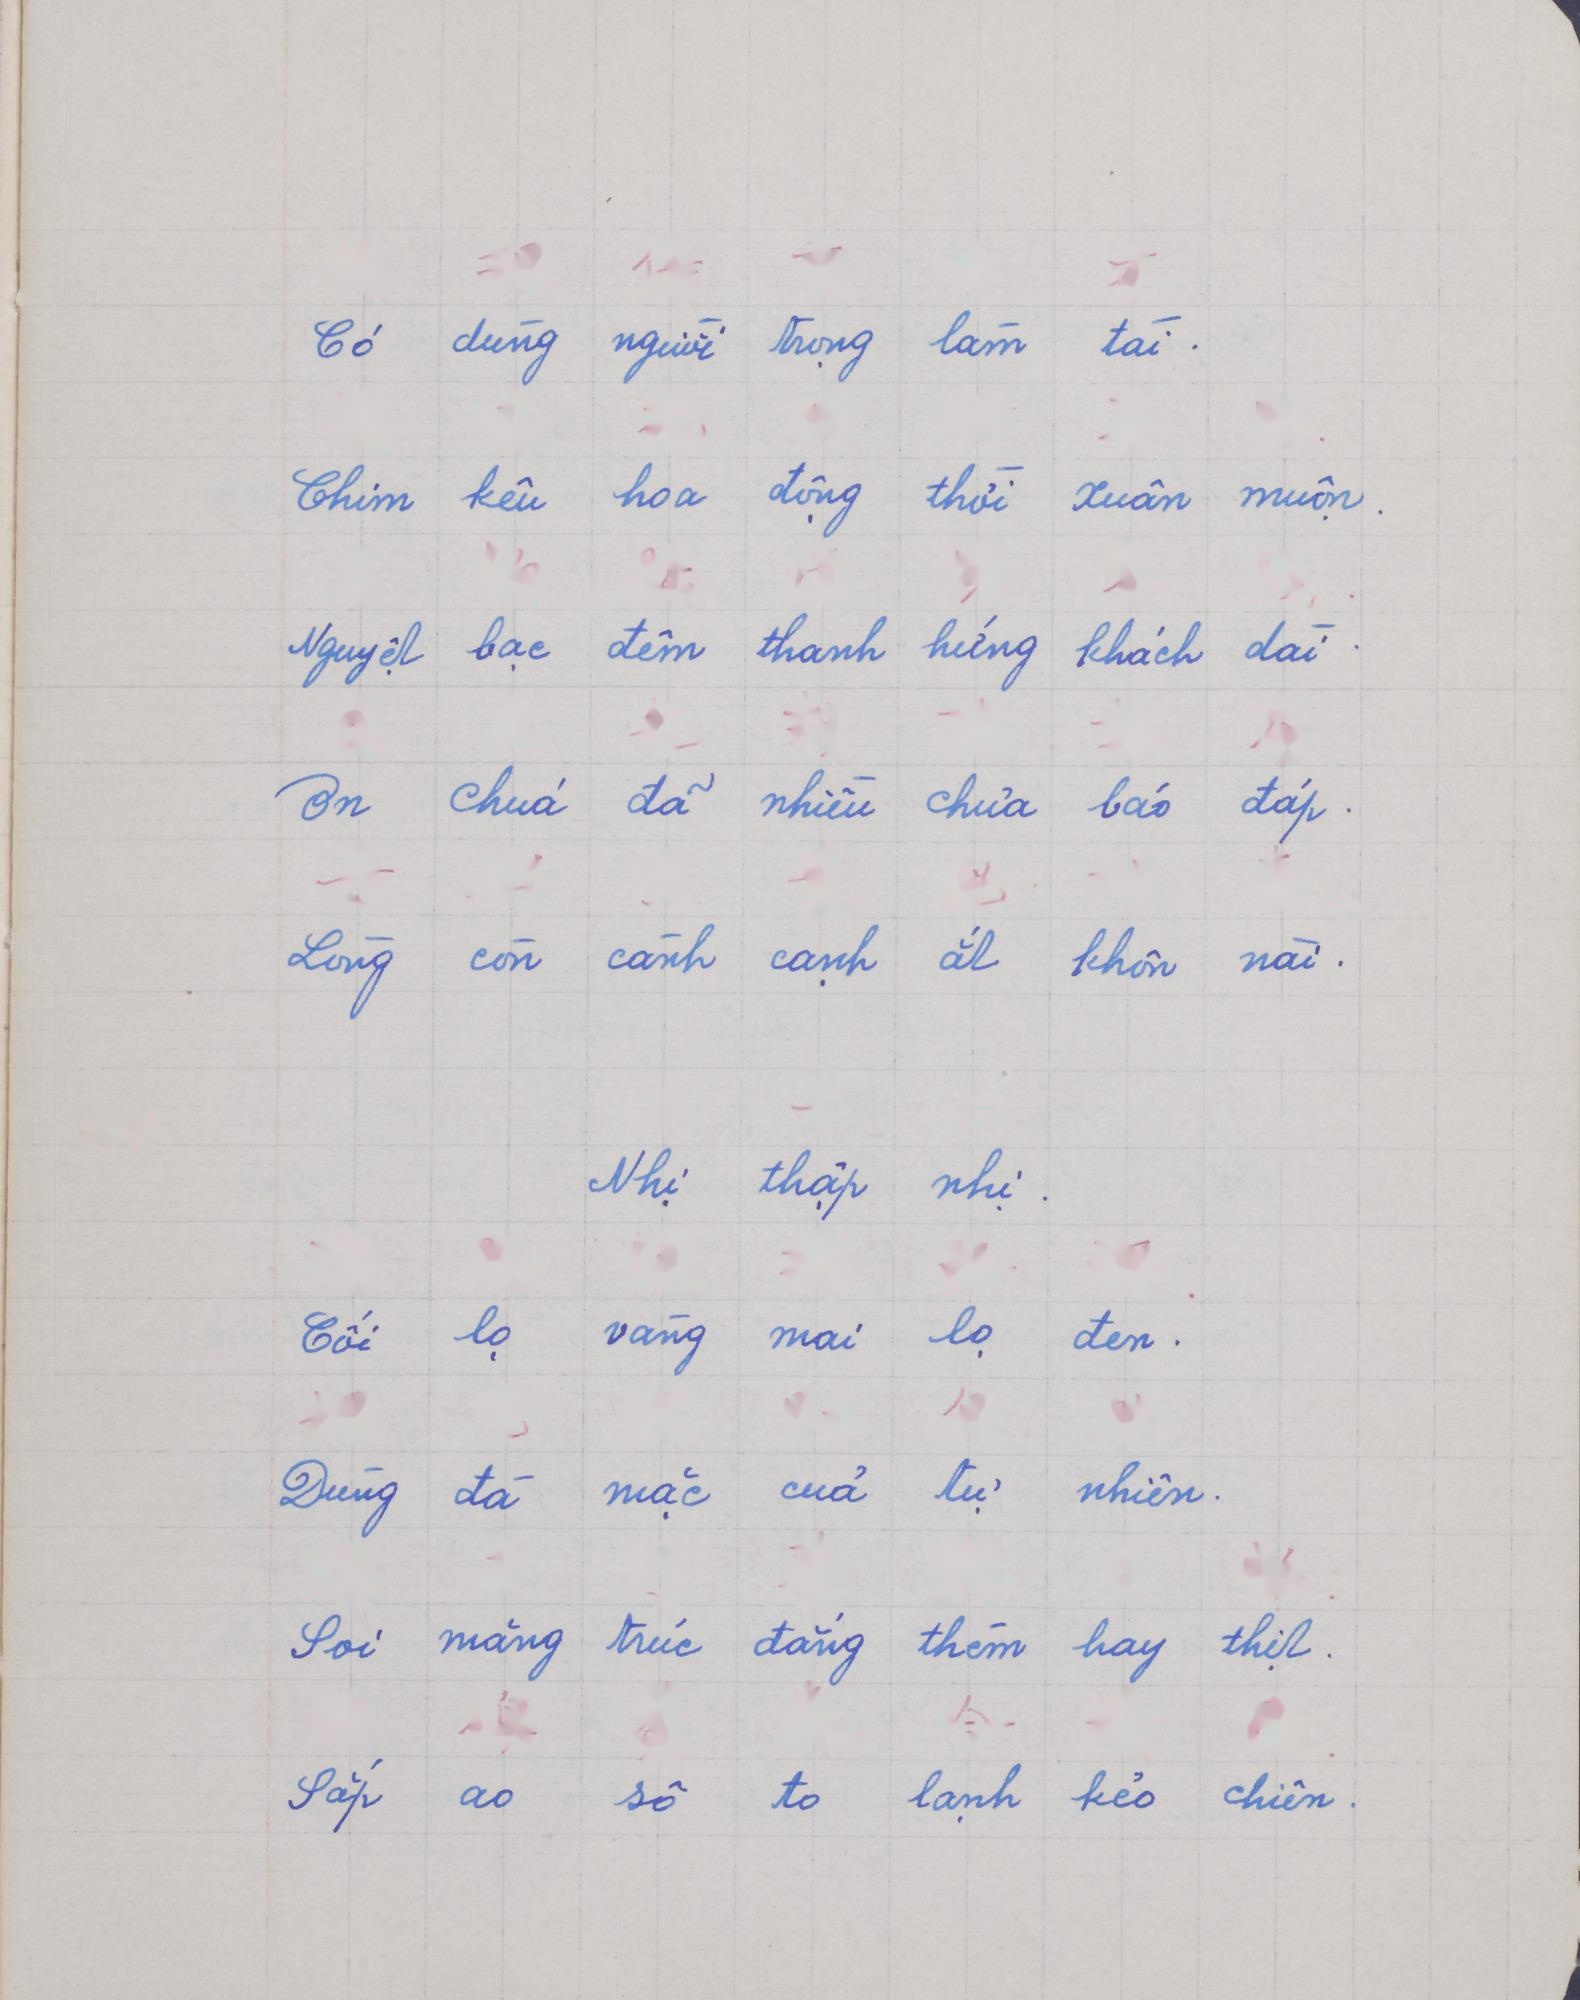 Có dùng người trọng làm tài.
Chim kêu hoa động thời xuân muộn.
Nguyệt bạc đêm thanh hứng khách dài.
Ơn chuá đã nhiều chưa báo đáp.
Lòng còn cành cạnh ắt khôn nài.
Nhị thập nhị.
Cối lọ vàng mai lọ đen.
Dùng đà mặc cuả tự nhiên.
Soi măng trúc đắng thèm hay thịt.
Sắp ao sô to lạnh kẻo chiên.